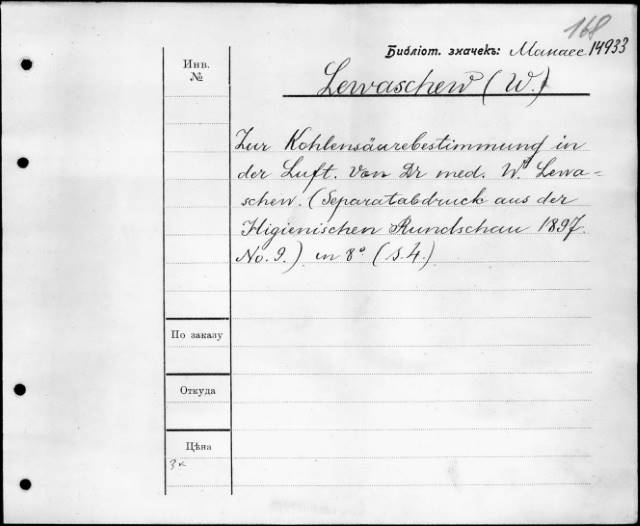 168
Библіот. значекъ: Манасс 14933
Инв.
№
Lewaschew (W.)
Zur Kohlensäurebestimmung in
der Luft. Von Dr med. W. Lewa-
schew. (Separatabdruck aus der
Higienischen Rundschau 1897.
No. 9.) in 8° (S. 4.)
По заказу
Откуда
Цѣна
3к